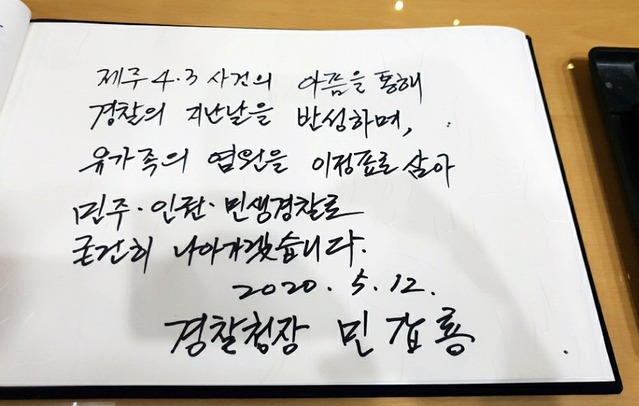 제주 4·3 사건의 아픔을 통해
경찰의 지난날을 반성하며,
유가족의 염원을 이정표로 삼아
민주·인권·민생경찰로
굳건히 나아가겠습니다.
2020. 5. 12.
경찰청장 민갑룡